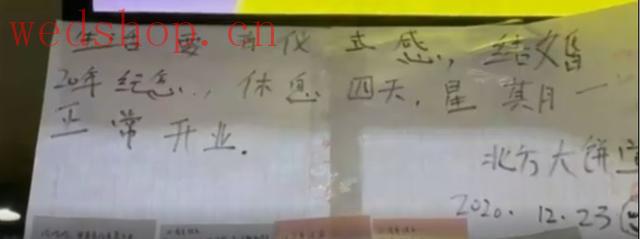 wedshop.cn
生活要有仪式感,结婚
20年纪念,休息四天,星期一
正常开业.
北方大饼
2020.12.23